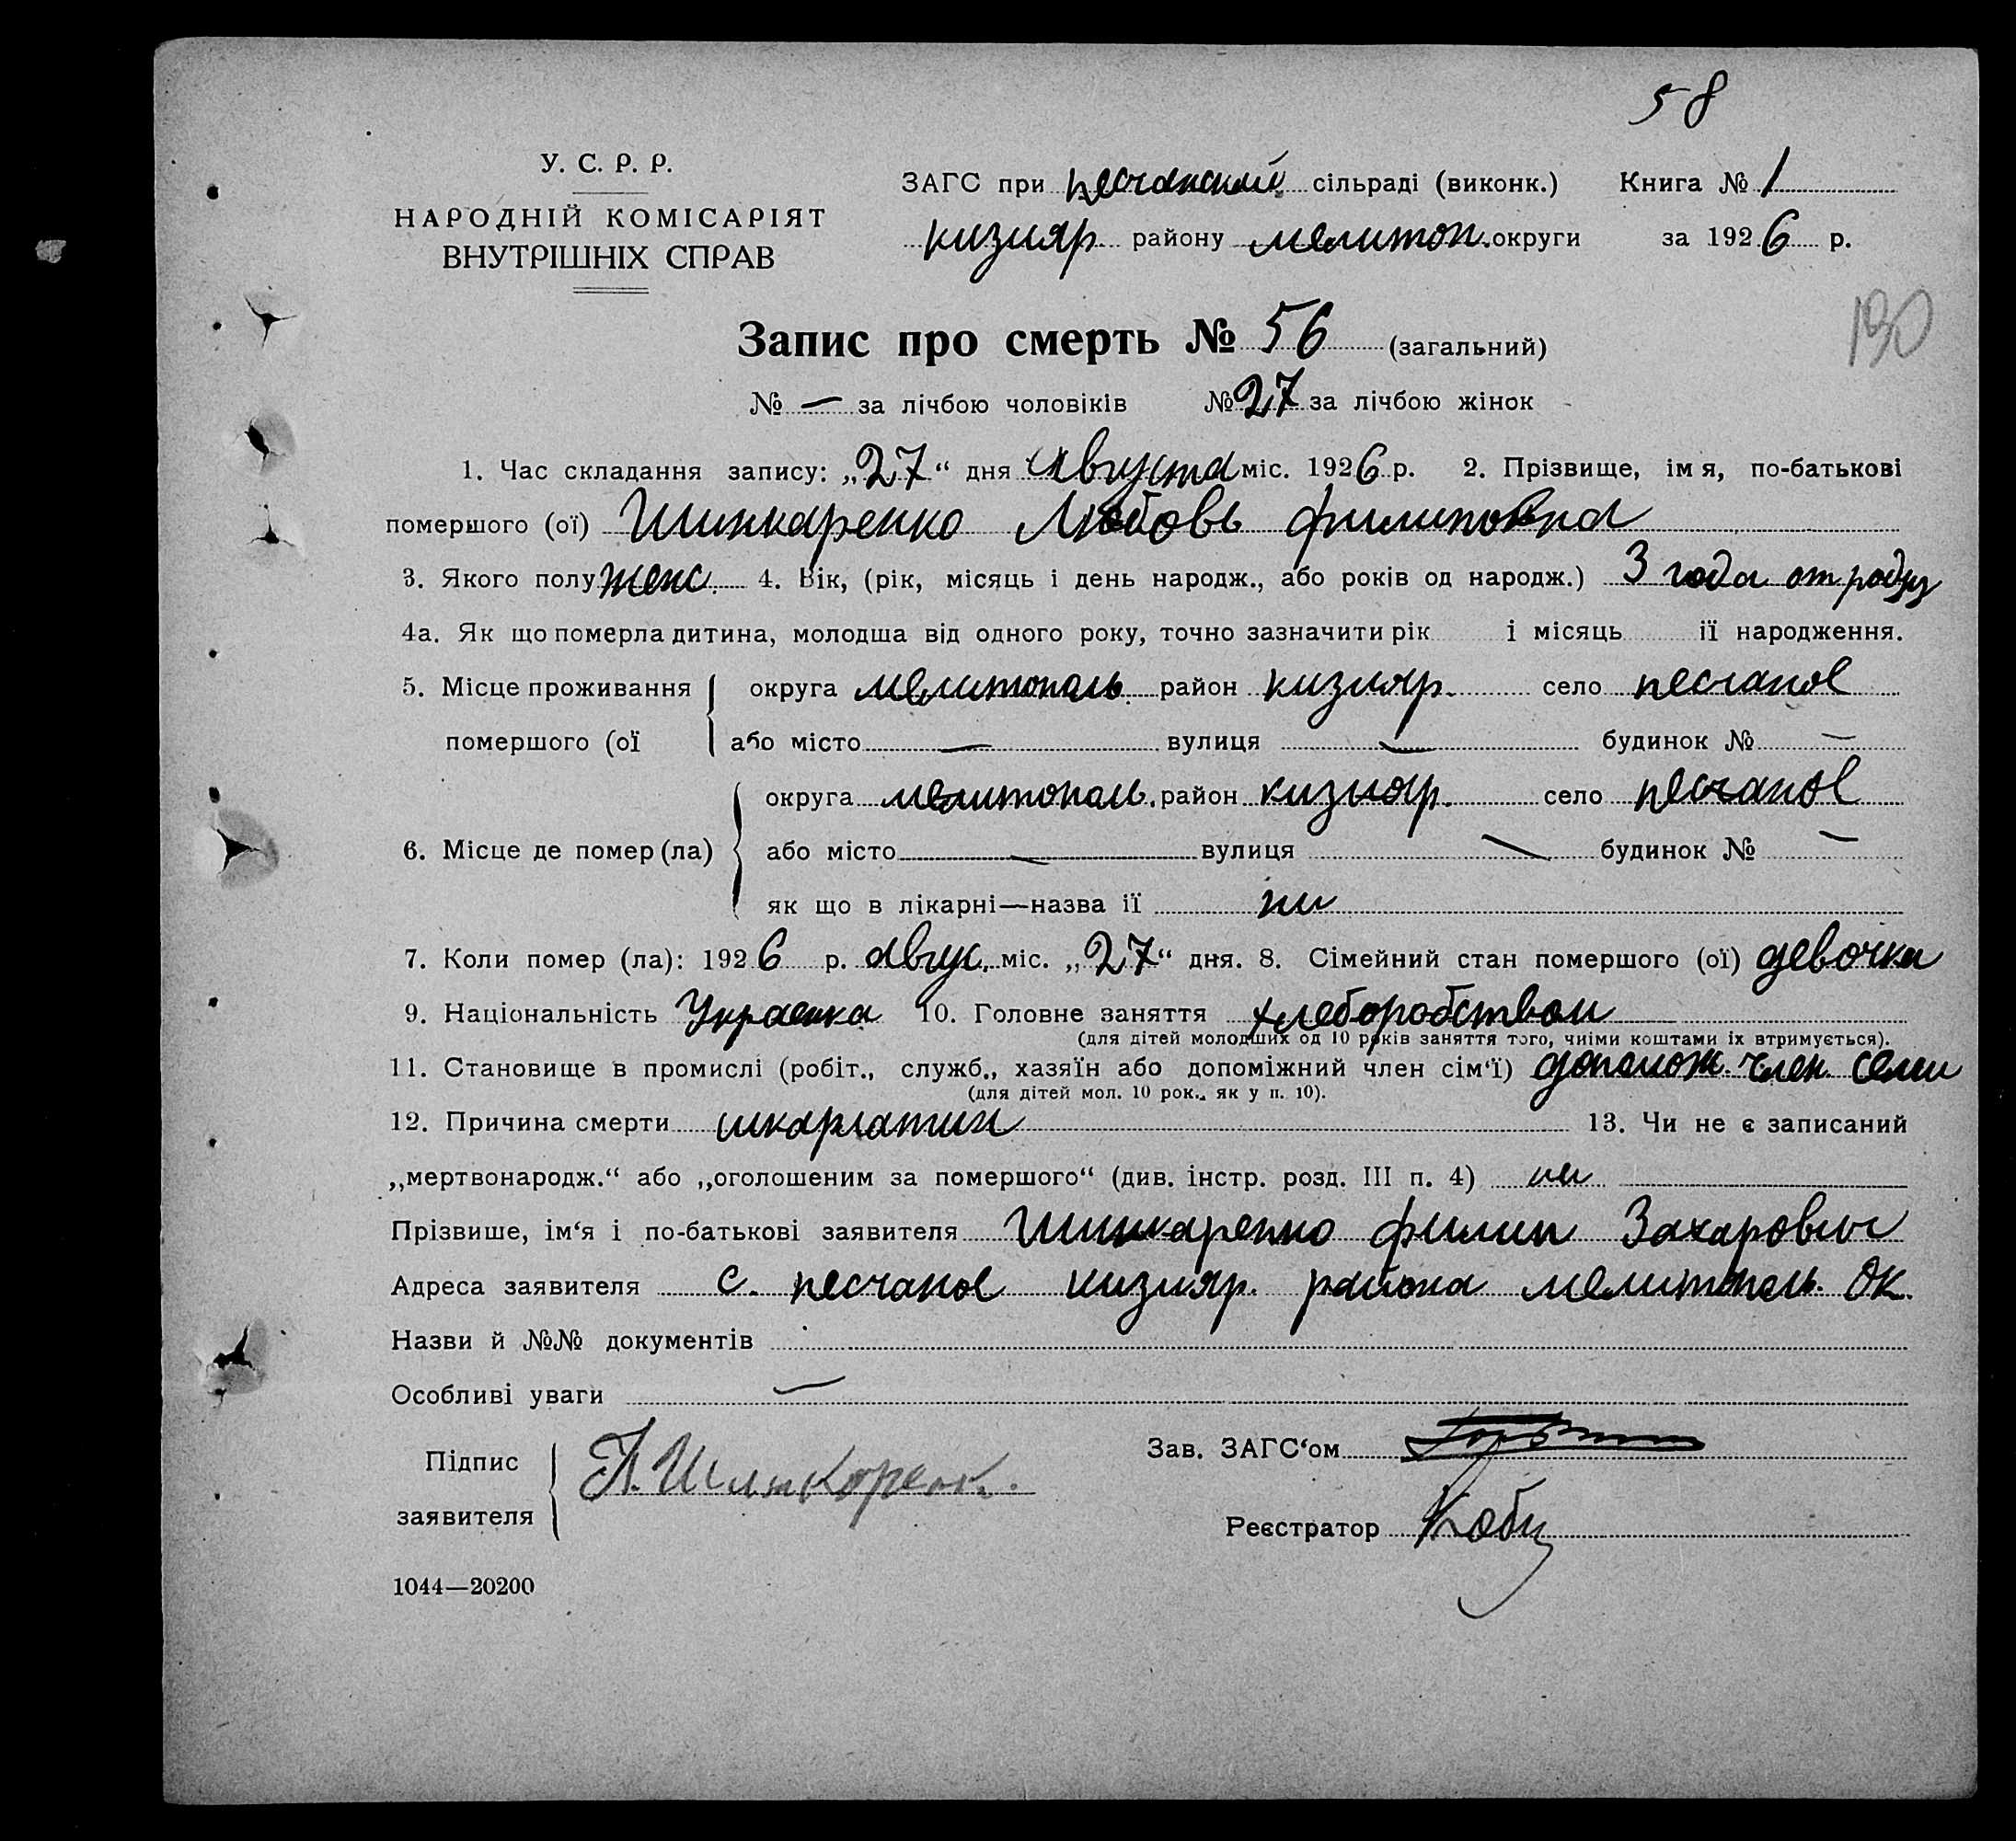 58
У. С. Р. Р.
НАРОДНІЙ КОМІСАРІЯТ
ВНУТРІШНІХ СПРАВ
ЗАГС при песчанской сільраді (виконк.) Книга № 1
кизияр. району мелитоп. округи за 1926 р.
190
Запис про смерть № 56 (загальний)
№ — за лічбою чоловіків № 27 за лічбою жінок
1. Час складання запису: „27“ дня Августа міс. 1926 р. 2. Прізвище, імя, по-батькові
помершого (ої) Шинкаренко Любовь филиповна
3. Якого полу женс. 4. Вік, (рік, місяць і день народж., або років од народж.) 3 года от
4а. Як що померла дитина, молодша від одного року, точно зазначити рік і місяць ії народження.
5. Місце проживання округа мелитополь. район кизияр. село песчаное
помершого (ої або місто — вулиця — будинок № —
6. Місце де помер (ла) округа мелитополь. район кизияр. село песчаное
або місто — вулиця — будинок № —
як що в лікарні—назва ії ни
7. Коли помер (ла): 1926 р. авгус. міс. „27“ дня. 8. Сімейний стан помершого (ої) девочка
9. Національність Украенка 10. Головне заняття хлеборобством
(для дітей молодших од 10 років заняття того, чиїми коштами їх втримується).
11. Становище в промислі (робіт., служб., хазяїн або допоміжний член сім‘ї) допомож. член семи
(для дітей мол. 10 рок., як у п. 10).
12. Причина смерти шкарлатин 13. Чи не є записаний
„мертвонародж.“ або „оголошеним за помершого“ (див. інстр. розд. III п. 4) ни
Прізвише, ім‘я і по-батькові заявителя Шинкаренко филип Захарович
Адреса заявителя с. песчаное кизияр. района мелитополь. ок.
Назви й №№ документів
Особливі уваги —
Підпис заявителя Шинкоренк.
Зав. ЗАГС‘ом
Реєстратор
1044—20200